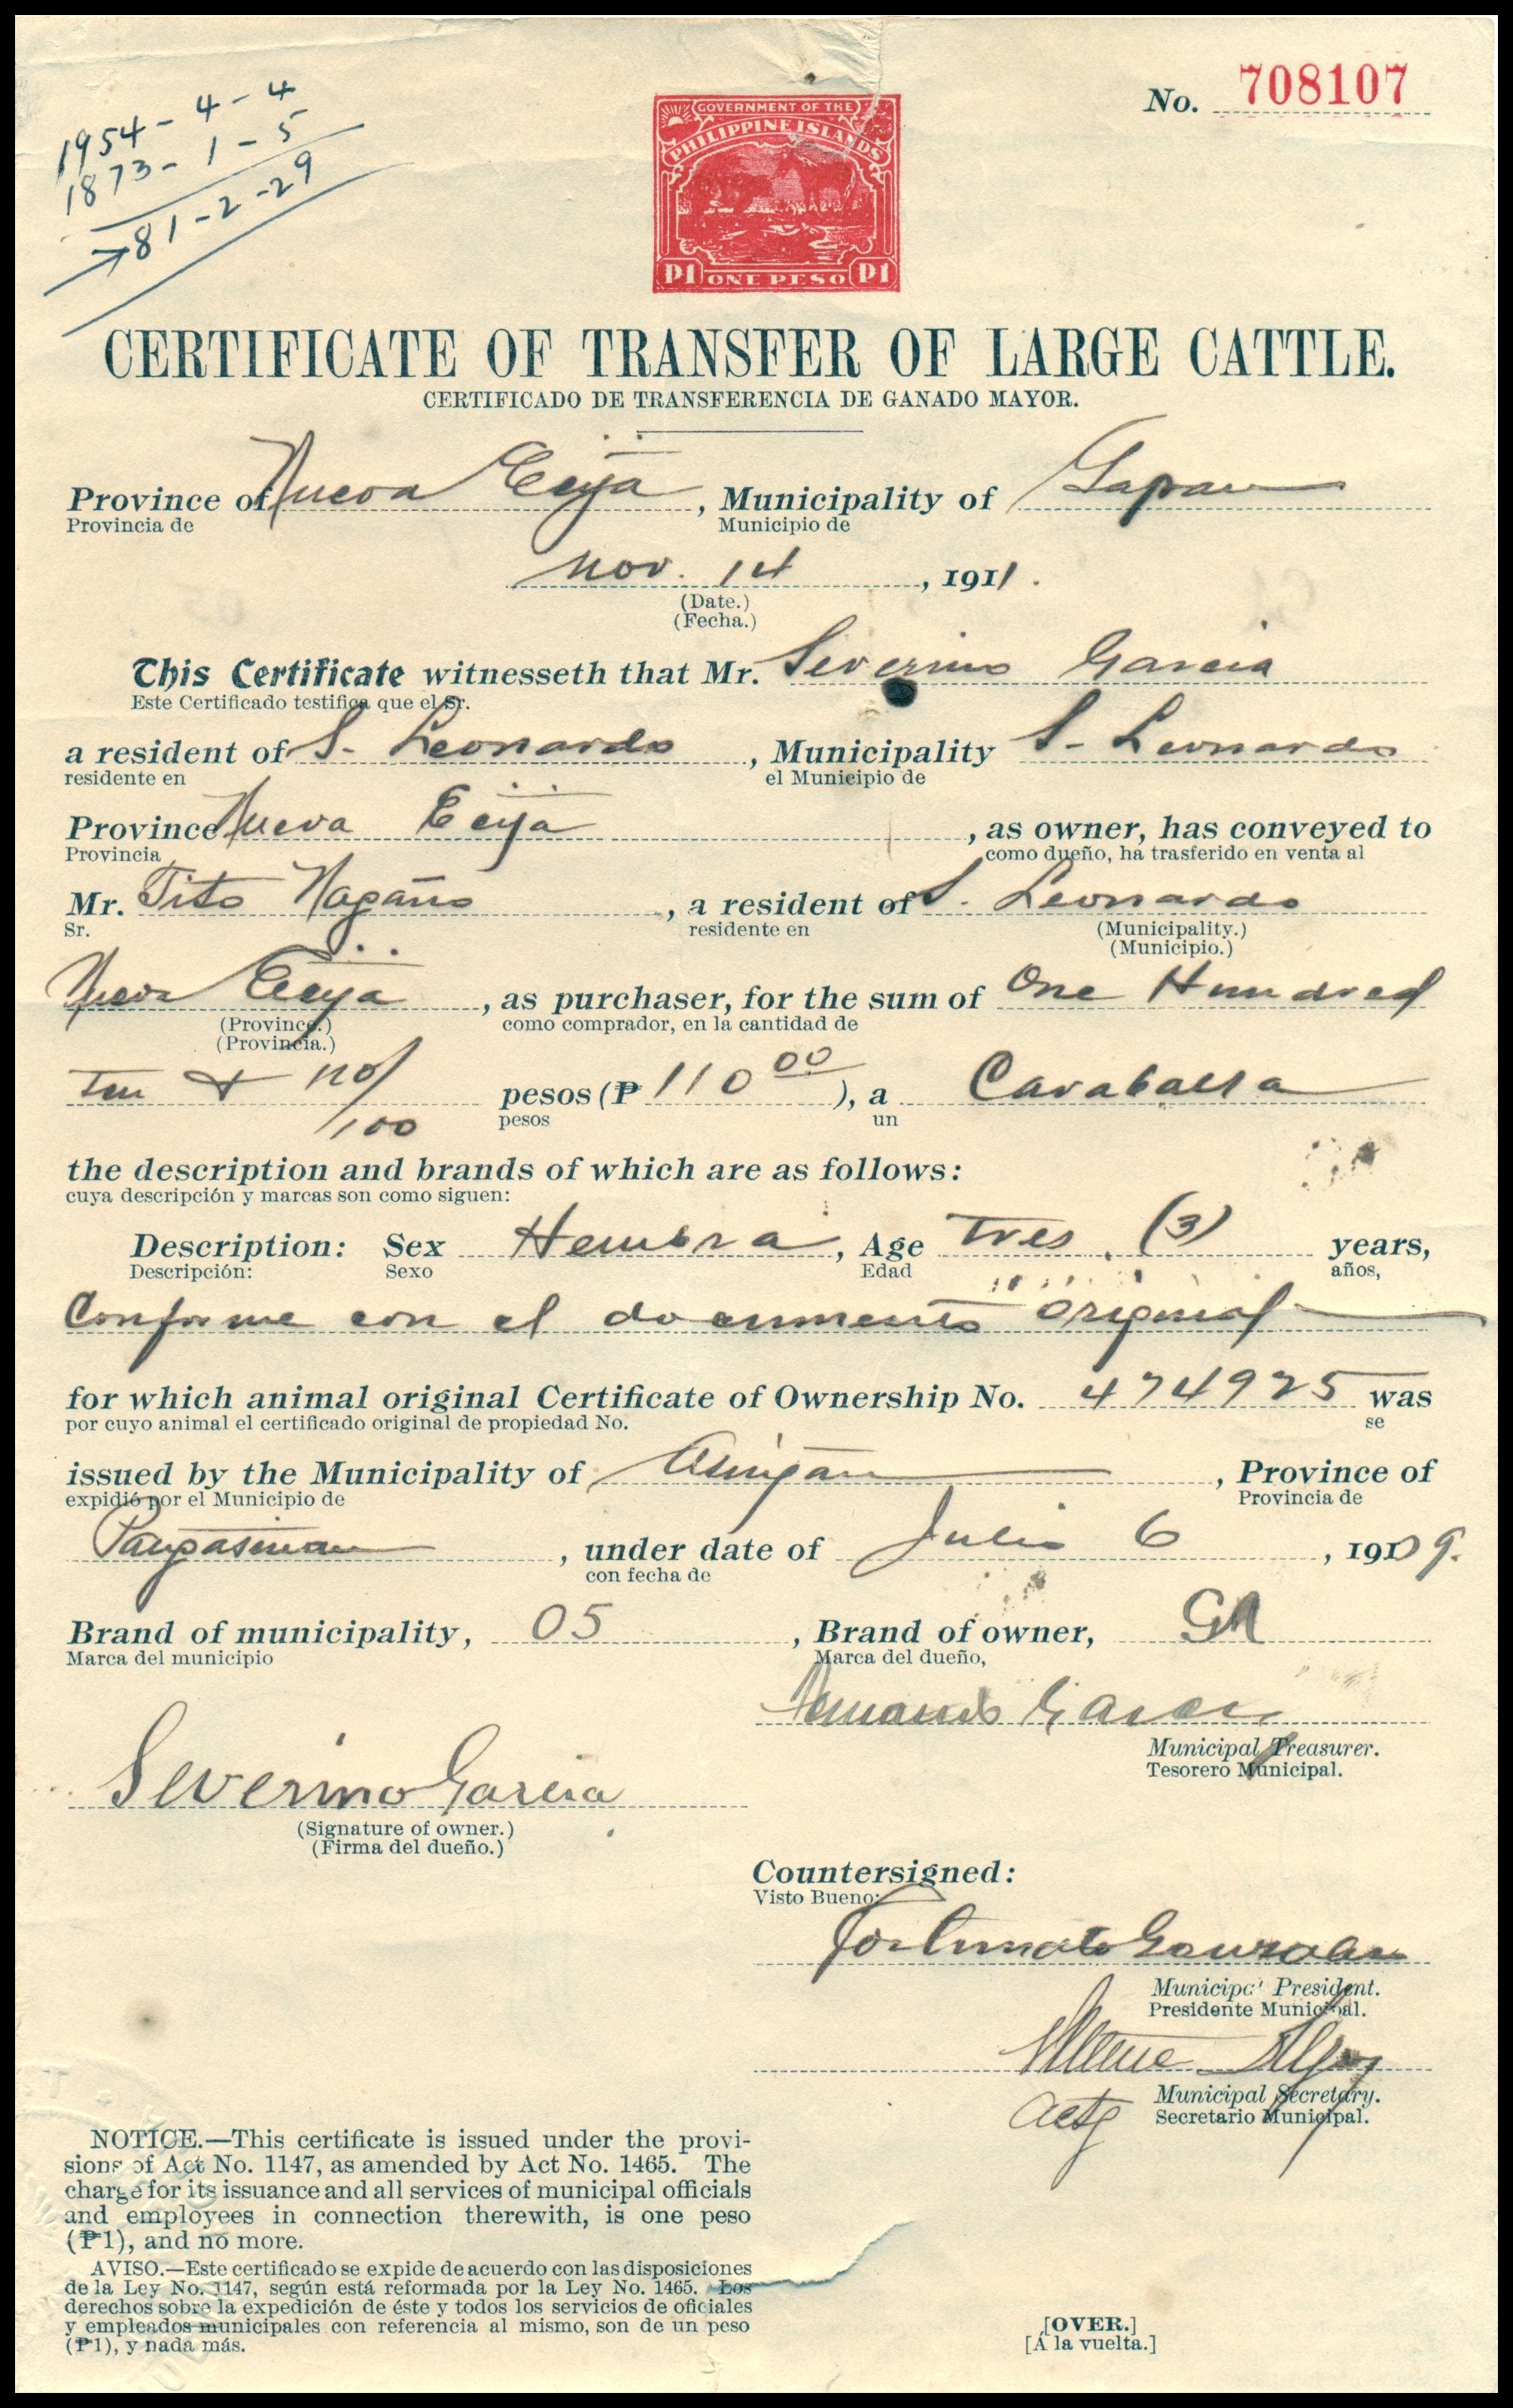 1954-4-4
1873-1-5
→81-2-29
No. 708107
GOVERNMENT OF THE
PHILIPPINE ISLANDS
P1 ONE PESO P1
CERTIFICATE OF TRANSFER OF LARGE CATTLE.
CERTIFICADO DE TRANSFERENCIA DE GANADO MAYOR.
Province of Nueva Ecija, Municipality of Gapan
Provincia de Municipio de
Nov. 14, 1911.
(Date.)
(Fecha.)
This Certificate witnesseth that Mr. Severino Garcia
Este Certificado testifica que el Sr.
a resident of S. Leonardo, Municipality S. Leonardo
residente en el Municipio de
Province Nueva Ecija, as owner, has conveyed to
Provincia como dueño, ha trasferido en venta al
Mr. Tito Nagaño, a resident of S. Leonardo
Sr. residente en (Municipality.)
(Municipio.)
Nueva Ecija, as purchaser, for the sum of One Hundred
(Province.) como comprador, en la cantidad de
(Provincia.)
Ten & no/100 pesos (₱ 110 00), a Caraballa
pesos un
the description and brands of which are as follows:
cuya descripción y marcas son como siguen:
Description: Sex Hembra, Age Tres (3) years,
Descripción: Sexo Edad años,
Conforme con el documento original
for which animal original Certificate of Ownership No. 474925 was
por cuyo animal el certificado original de propiedad No. se
issued by the Municipality of Asingan, Province of
expidió por el Municipio de Provincia de
Pangasinan, under date of Julio 6, 1909.
con fecha de
Brand of municipality, 05, Brand of owner, GA
Marca del municipio Marca del dueño,
Garcia
Municipal Treasurer.
Tesorero Municipal.
Severino Garcia
(Signature of owner.)
(Firma del dueño.)
Countersigned:
Visto Bueno:
Fortunato Gonzales
Municipal President.
Presidente Municipal.
Actg Municipal Secretary.
Secretario Municipal.
NOTICE.—This certificate is issued under the provi-
sions of Act No. 1147, as amended by Act No. 1465. The
charge for its issuance and all services of municipal officials
and employees in connection therewith, is one peso
(₱1), and no more.
AVISO.—Este certificado se expide de acuerdo con las disposiciones
de la Ley No. 1147, según está reformada por la Ley No. 1465. Los
derechos sobre la expedición de éste y todos los servicios de oficiales
y empleados municipales con referencia al mismo, son de un peso
(₱1), y nada más.
[OVER.]
[Á la vuelta.]